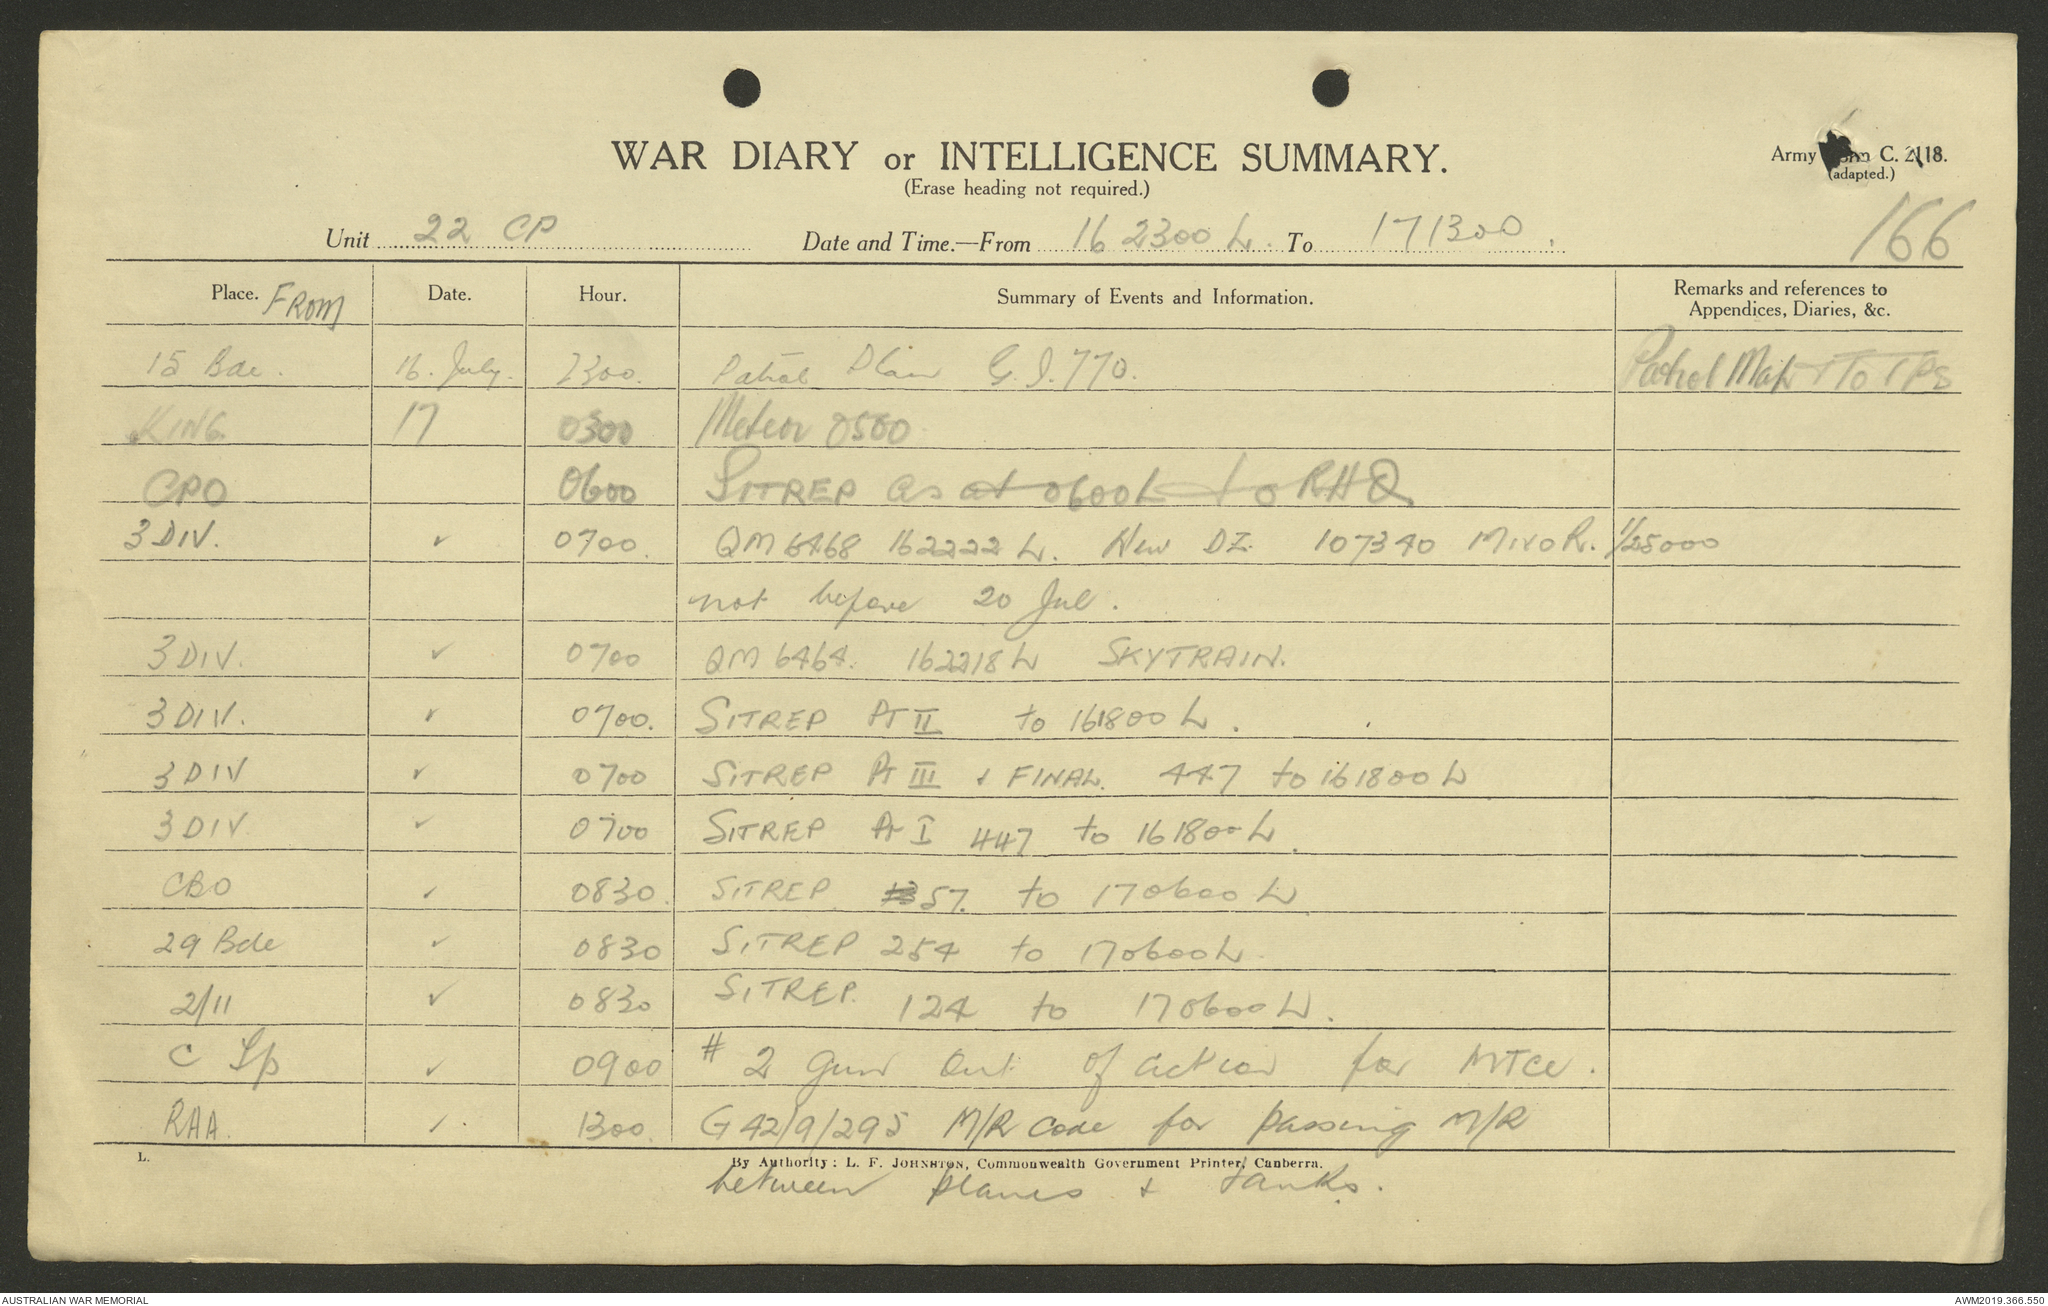 WAR DIARY or INTELLIGENCE SUMMARY.
(Erase heading not required.)
Army Form C. 2118.
(adapted.)
166
Unit 22 CP Date and Time.—From 16 2300 L. To 171300.
Place. FROM Date. Hour. Summary of Events and Information. Remarks and references to Appendices, Diaries, &c.
15 Bde. 16. July. 2300. Patrol Plan G.I. 770. Patrol Map to TPs
KING 17 0300 Meteor 0500
CPO 0600 SITREP as at 0600L to RHQ
3 DIV. ✓ 0700. QM 6468 162222 L. New DZ 107340 MIVO R. 1/25000
not before 20 Jul.
3 DIV. ✓ 0700 QM 6464. 162218L SKYTRAIN.
3 DIV. ✓ 0700. SITREP Pt II to 161800 L.
3 DIV ✓ 0700 SITREP Pt III & FINAL. 447 to 161800 L
3 DIV ✓ 0700 SITREP Pt I 447 to 161800 L.
CBO ✓ 0830. SITREP 57. to 170600 L
29 Bde ✓ 0830 SITREP 254 to 170600L.
2/11 ✓ 0830 SITREP. 124 to 170600 L.
C Tp ✓ 0900 # 2 Gun Out of action for MTCE.
RAA. ✓ 1300. G 42/9/295 M/R Code for passing M/R
between planes & tanks.
L.
By Authority: L. F. JOHNSTON, Commonwealth Government Printer, Canberra.
AUSTRALIAN WAR MEMORIAL
AWM2019.366.550